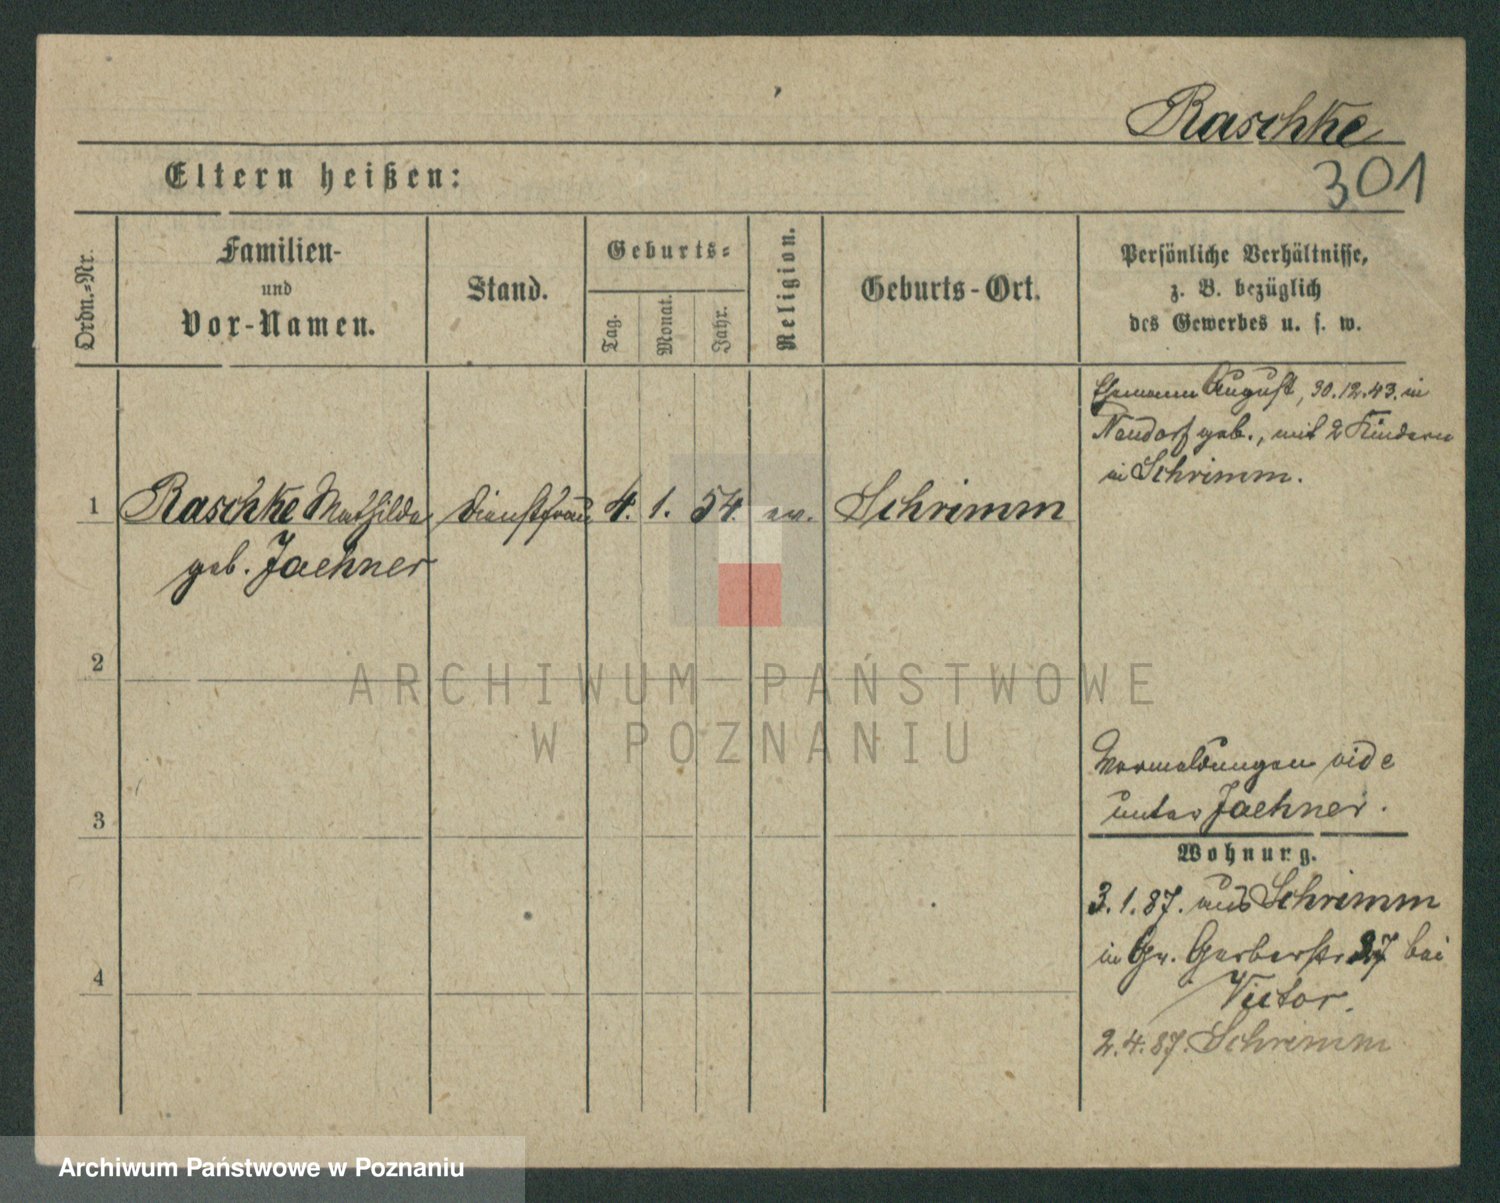 Raschke
301
Eltern heißen:
Ordn.-Nr.
Familien-
und
Vor-Namen.
Stand.
Geburts-
Tag.
Monat.
Jahr.
Religion.
Geburts-Ort.
Persönliche Verhältnisse,
z. B. bezüglich
des Gewerbes u. s. w.
Ehemann August, 30.12.43. in
Neudorf geb., mit 2 Kindern
in Schrimm.
1 Raschke Mathilde Dienstfrau 4. 1. 54. ev. Schrimm
geb. Jaehner
2
ARCHIWUM PAŃSTWOWE
W POZNANIU
Vormeldungen vide
unter Jaehner.
3
Wohnung.
3.1.87. aus Schrimm
in Gr. Gerberstr 27 bei
Victor.
4
2.4.87. Schrimm
Archiwum Państwowe w Poznaniu